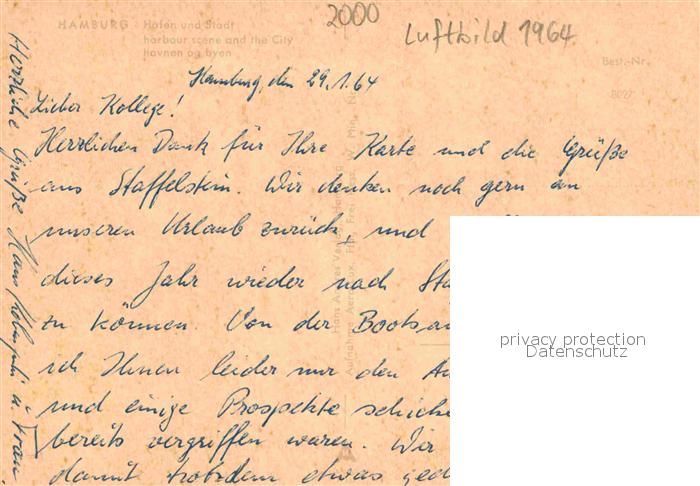 2000
Luftbild 1964
HAMBURG Hafen und Stadt
harbour scene and the City
havnen og byen
Best.-Nr.
Hamburg, den 29.1.64
Lieber Kollege!
Herzlichen Dank für Ihre Karte und die Grüße
aus Staffelstein. Wir denken noch gern an
unseren Urlaub zurück, und
dieses Jahr wieder nach Sta
zu können. Von der Bootsau
ich Ihnen leider nur den
und einige Prospekte schicke
bereits vergriffen waren. Wir
damit trotzdem etwas ged
Herzliche Grüße Hans u. Frau
privacy protection
Datenschutz